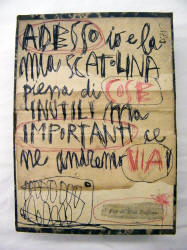 ADESSO io e la
mia SCATOLINA
piena di COSE
INUTILI ma
IMPORTANTI ce
ne andiamo VIA